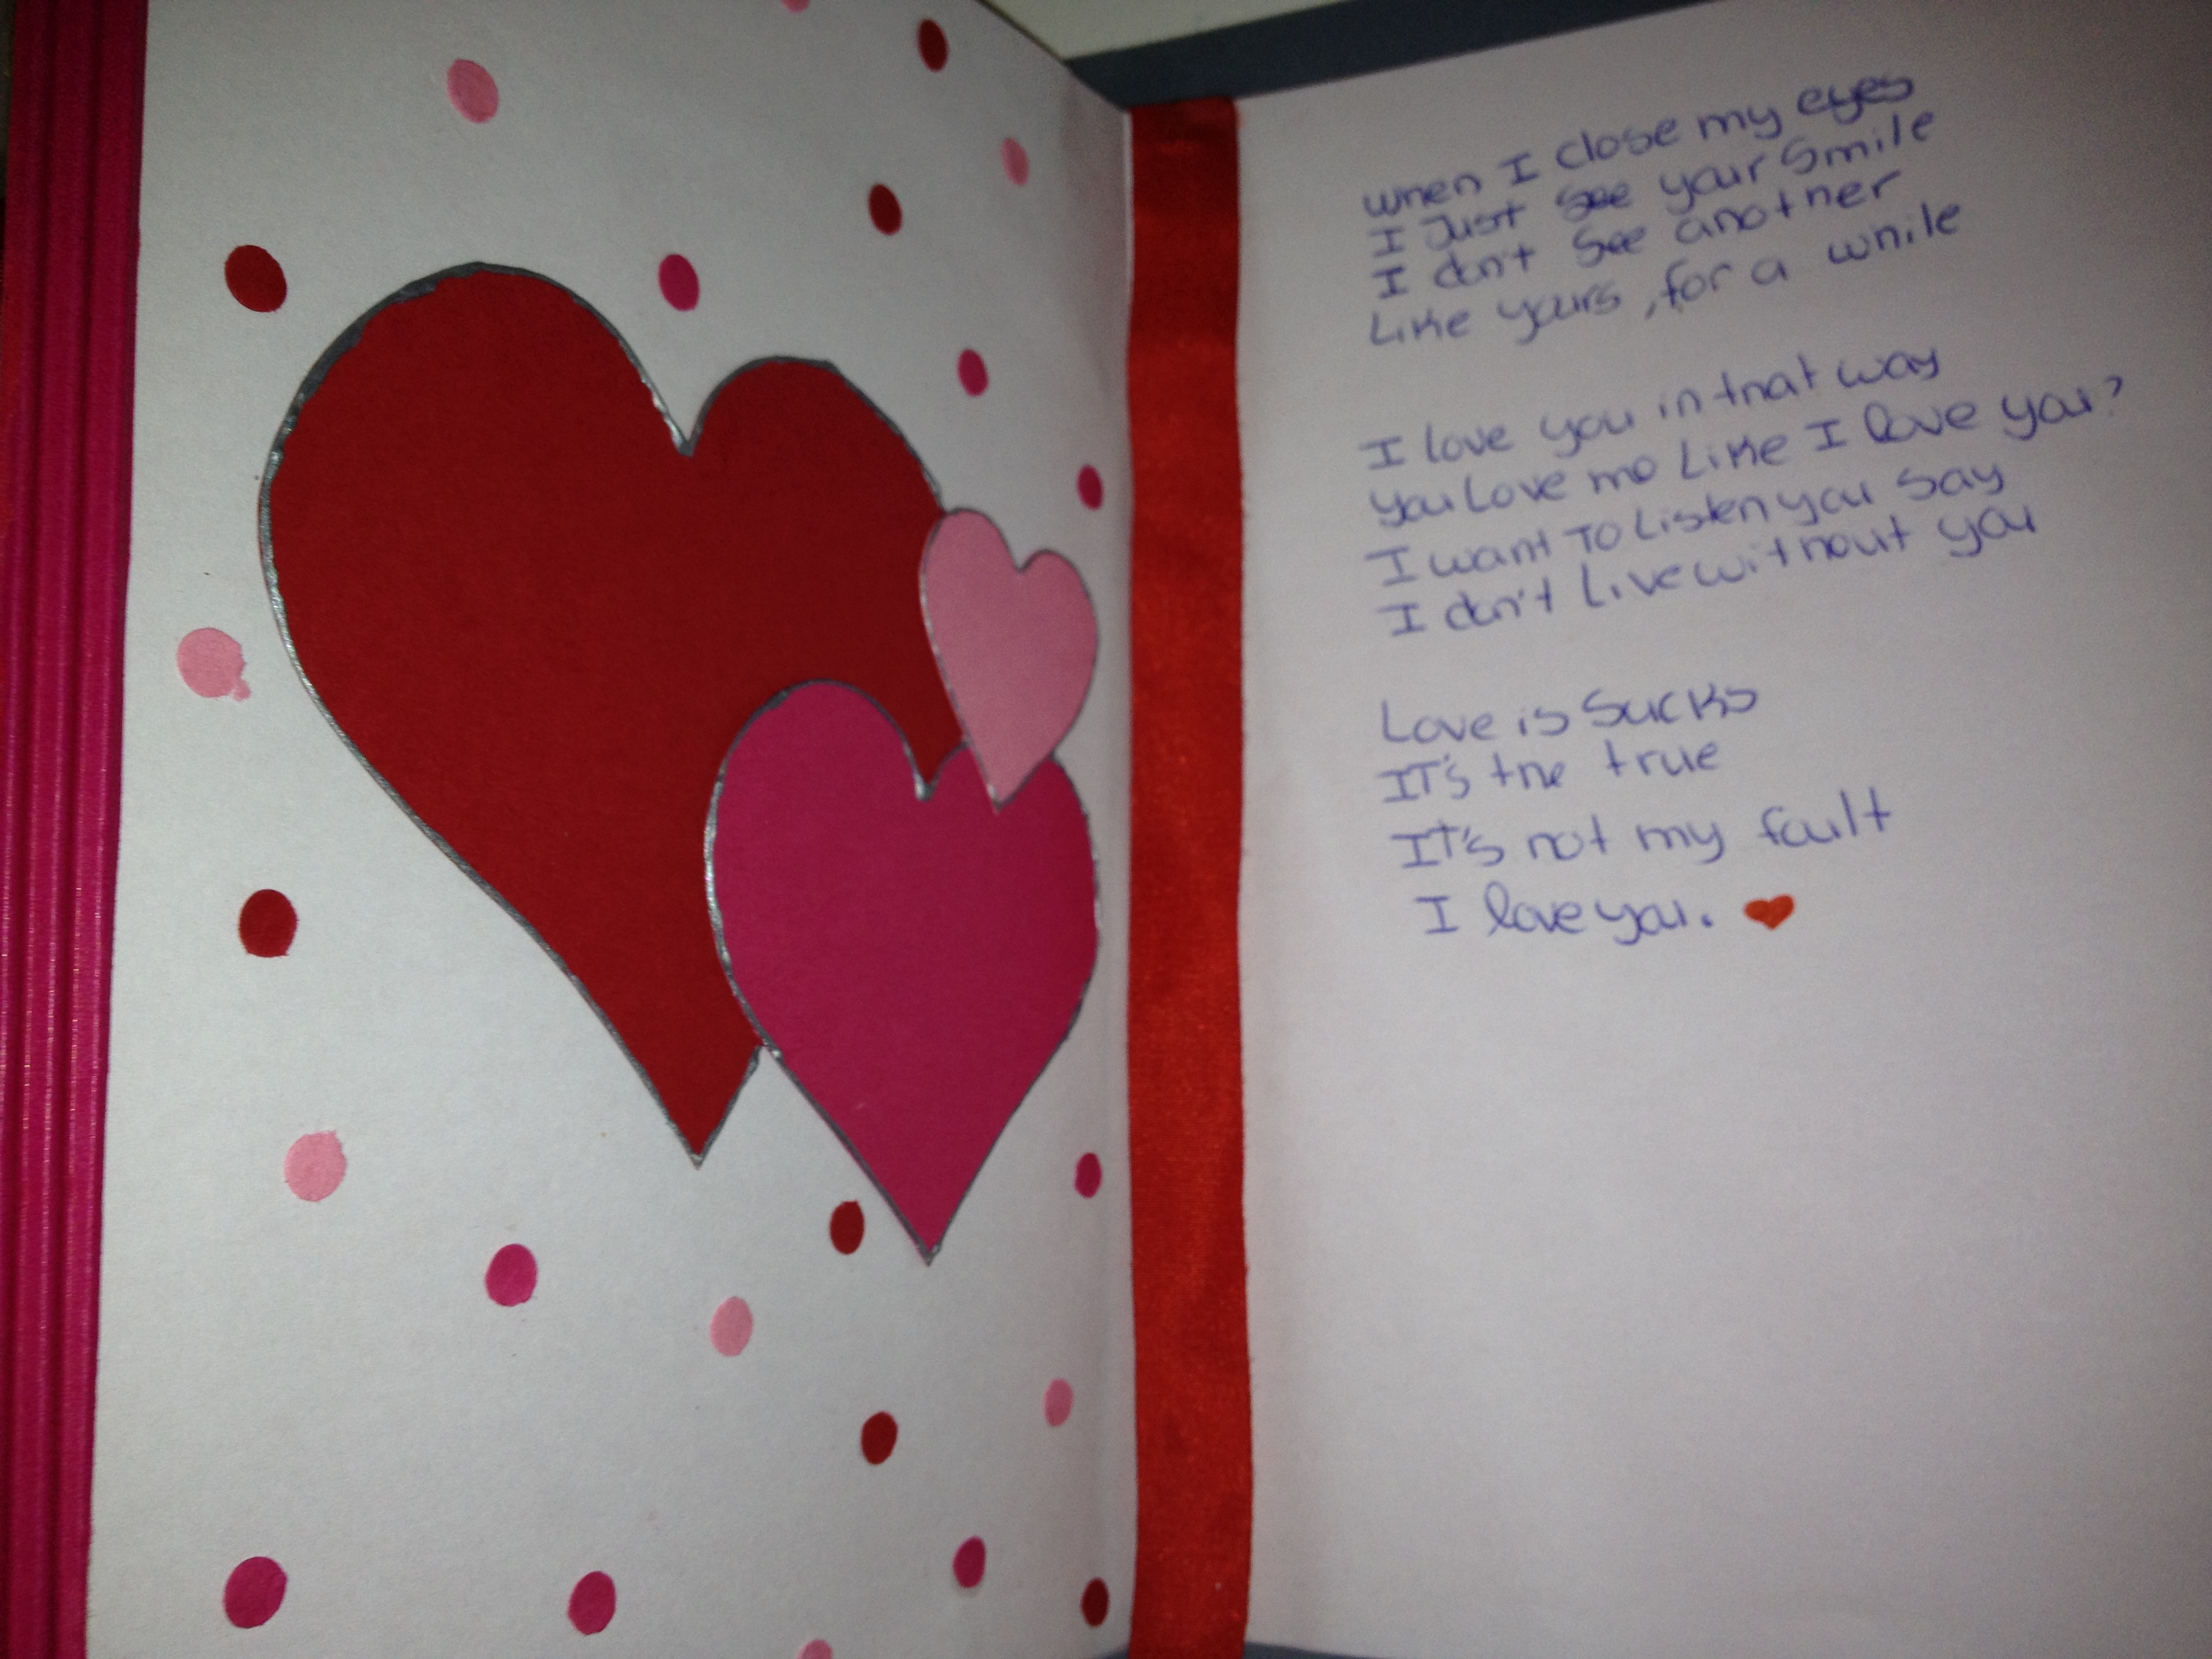 When I close my eyes
I Just see your smile
I don't see another
Like yours, for a while
I love you in that way
You Love me Like I love you?
I want To Listen you say
I don't Live without you
Love is Sucks
IT's the true
IT's not my fault
I love you.